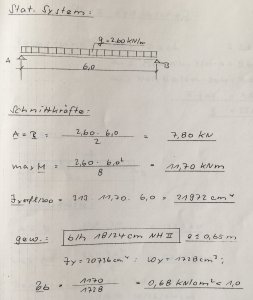 Stat. System:
q = 2,60 kN/m
A B
6,0
Schnittkräfte:
A = B = 2,60 · 6,0 / 2 = 7,80 kN
max M = 2,60 · 6,0² / 8 = 11,70 kNm
313 · 11,70 · 6,0 = 21972 cm⁴
gew.: b/h 18/24 cm NH II e ≤ 0,65 m
Jy = 20736 cm⁴ ; Wy = 1728 cm³ ;
σb = 1170 / 1728 = 0,68 kN/cm² < 1,0